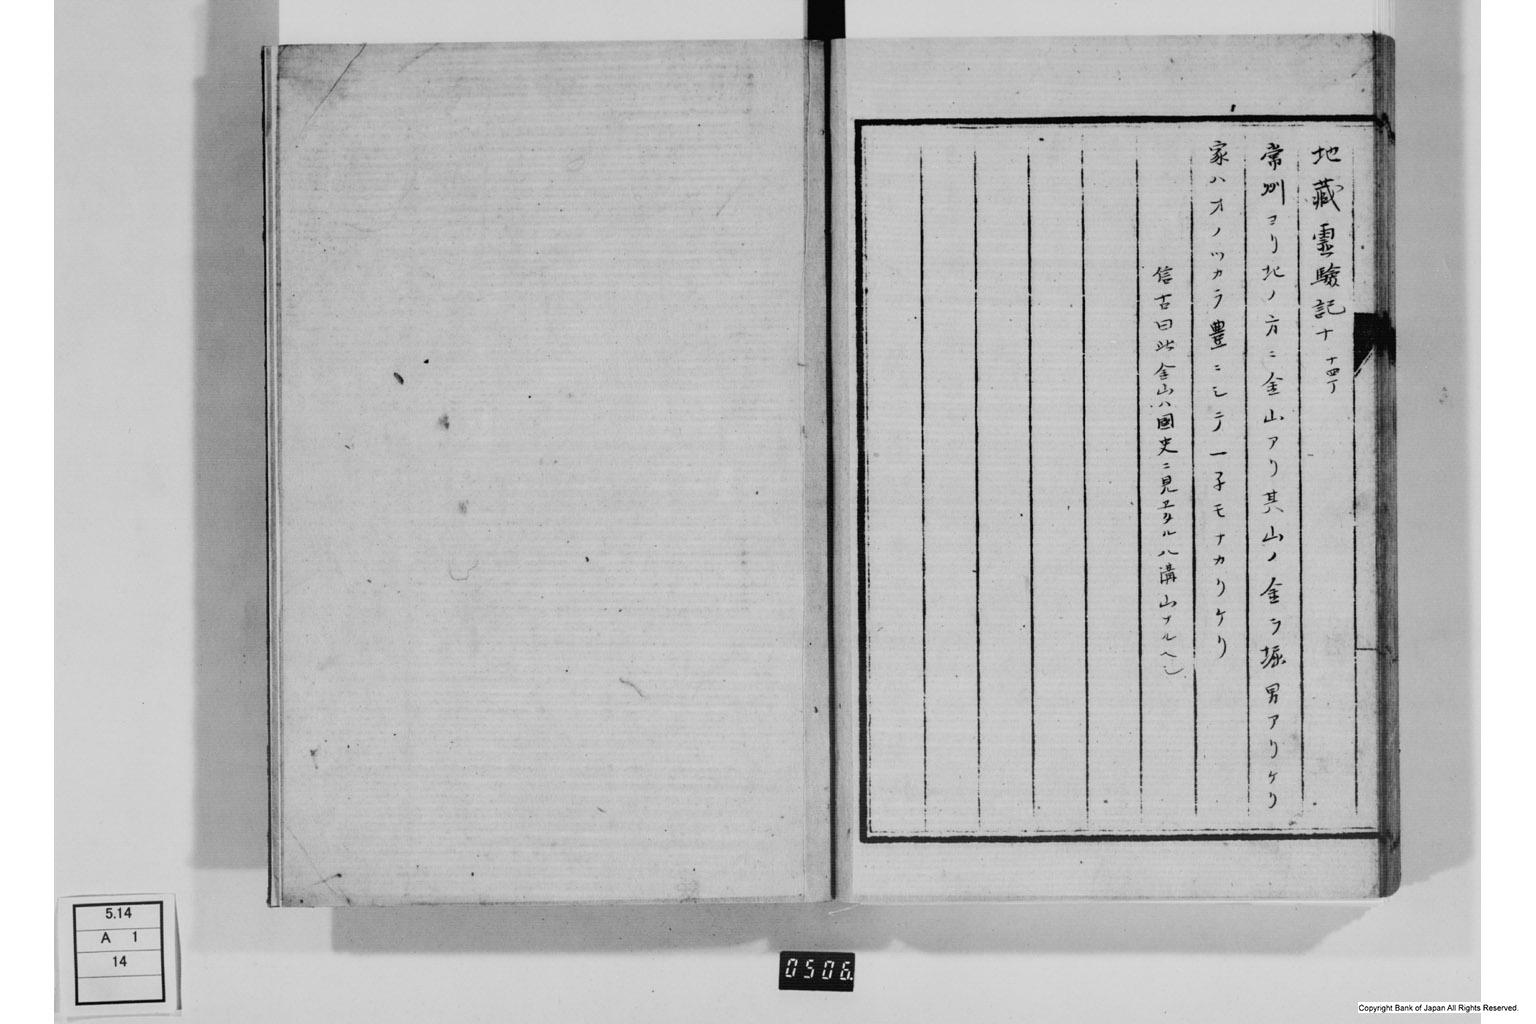 地藏靈驗記十 十四丁
常州ヨリ北ノ方ニ金山アリ其山ノ金ヲ堀男アリケリ
家ハオノツカラ豊ニシテ一子モナカリケリ
信古曰此金山ハ國史ニ見エタル八溝山ナルヘシ
5.14
A 1
14
0506
Copyright Bank of Japan All Rights Reserved.